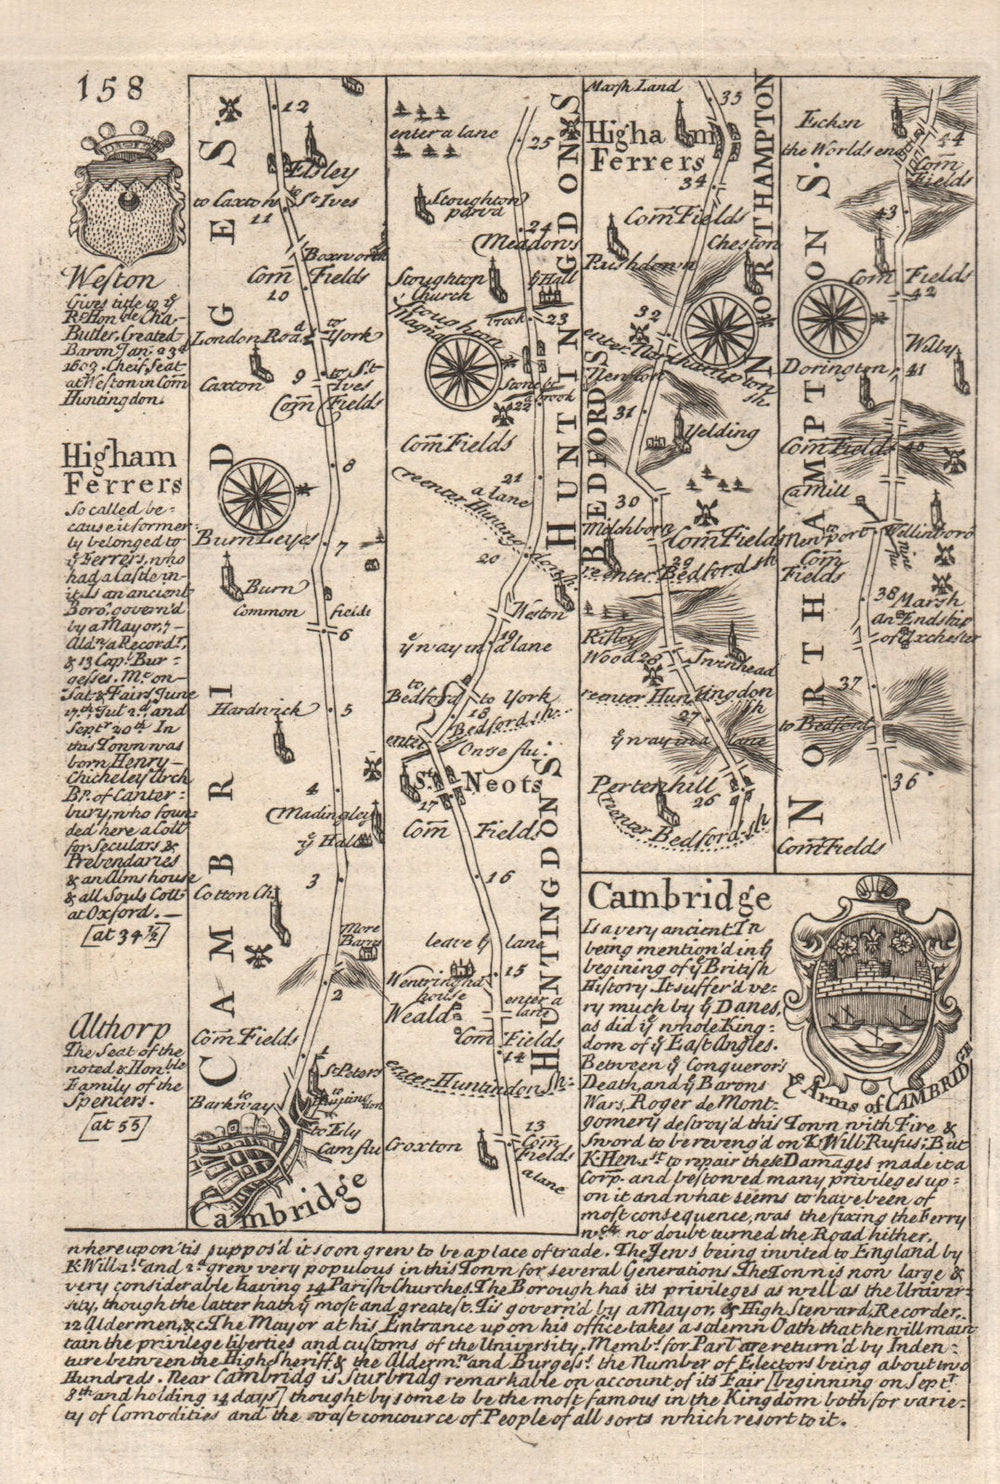 158
Weston
Gives title to ye
Rt. Honble. Cha.
Butler, Created
Baron Jan. 23d
1693. Cheif Seat
at Weston in Com̄
Huntingdon.
Higham
Ferrers
So called be=
cause it former=
ly belonged to
ye Ferrers, who
had a Castle in
it. Is an ancient
Boro'. govern'd
by a Mayor, 7
Aldn. a Recordr.
& 13 Capl. Bur=
gesses. Mt. on
Sat. & Fairs June
17.th Jul 2d. and
Septr. 20th. In
this Town was
born Henry
Chicheley Arch
Bp. of Canter=
bury, who foun=
ded here a Coll.
for Seculars &
Prebendaries
& an Almshouse
& all Souls Coll:
at Oxford.
[at 34 ½]
Althorp
The Seat of the
noted & Honble
Family of the
Spencers.
[at 55]
CAMBRIDGES.
12
Elsley
to Caxton
to St. Ives
11
Boxworth
Com̄ Fields
10
London Road
to York
9
to St.
Ives
Caxton
Com̄ Fields
8
Burn Leyes
7
Burn
Common fields
6
Hardwick
5
4
Madingley
ye Hall
3
Cotton Ch.
More
Barns
2
Com̄ Fields
1
St. Peters
to Barkway
to
Huntingdon
to Ely
Cam flu
Cambridge
HUNTINGDONS
enter a lane
25
Stoughton
parva
24
Meadows
Stoughton
Church
ye Hall
Brook
23
Stoughton
Magna
Stone Br.
a Brook
22
Com̄ Fields
21
a lane
reenter Huntingdonsh.
20
Weston
19
ye way in a lane
to
Bedford
to York
18
Bedford sh.
enter
Ouse flu.
St. Neots
17
Com̄ Fields
16
leave ye lane
15
Wentringha
house
Weald
enter a
lane
Com̄ Fields
14
enter Huntingdon Sh:
HUNTINGDONS
13
Croxton
Com̄
Fields
a lane
Marsh Land
35
Higham
Ferrers
34
Com̄ Fields
Cheston
Rushdown
32
enter Northampton
sh.
Newton
31
Yelding
30
Milchborn
Com̄ Fields
29
reenter Bedford sh
BEDFORDS
NORTHAMPTON
Risley
Wood
28
Swinhead
reenter Huntingdon
sh
27
ye way in a lane
Pertenhill
26
reenter Bedford-sh
Ecken
the Worlds end
44
Com̄
Fields
43
Com̄ Fields
42
Wilby
Dorington
41
Com̄ Fields
40
a Mill
to
Newport
Wellinboro
Nine
flu
Com̄
Fields
38
Marsh
an Endship
of Irchester
37
to Bedford
36
Com̄ Fields
NORTHAMPTONS.
Cambridge
Is a very ancient Tn
being mention'd in ye
begining of ye British
History. It suffer'd ve=
ry much by ye Danes,
as did ye whole King=
dom of ye East Angles.
Between ye Conqueror's
Death, and ye Barons
Wars, Roger de Mont-
gomery destroy'd this Town with Fire &
Sword to be reveng'd on K. Will. Rufus; But
K. Hen. 1st. to repair these Damages made it a
Corp. and bestowed many privileges up=
on it and what seems to have been of
most consequence, was the fixing the Ferry
wch. no doubt turned the Road hither,
ye Arms of CAMBRIDGE
whereupon 'tis suppos'd it soon grew to be a place of trade. The Jews being invited to England by
K. Will. 1st. and 2d. grew very populous in this Town for several Generations. The Town is now large &
very considerable having 14 Parish-Churches. The Borough has its privileges as well as the Univer=
sity, though the latter hath ye most and greatest. Tis govern'd by a Mayor, & High Steward, Recorder,
12 Aldermen, &c. The Mayor at his Entrance upon his office takes a solemn Oath that he will main=
tain the privilege liberties and customs of the University. Membs. for Parl. are return'd by Inden=
ture between the High Sheriff & the Alderm.n and Burgess.s the Number of Electors being about two
Hundreds. Near Cambridg is Sturbridg remarkable on account of its Fair [beginning on Sept.r
8th. and holding 14 days] thought by some to be the most famous in the Kingdom both for varie=
ty of Comodities and the vast concource of People of all sorts which resort to it.